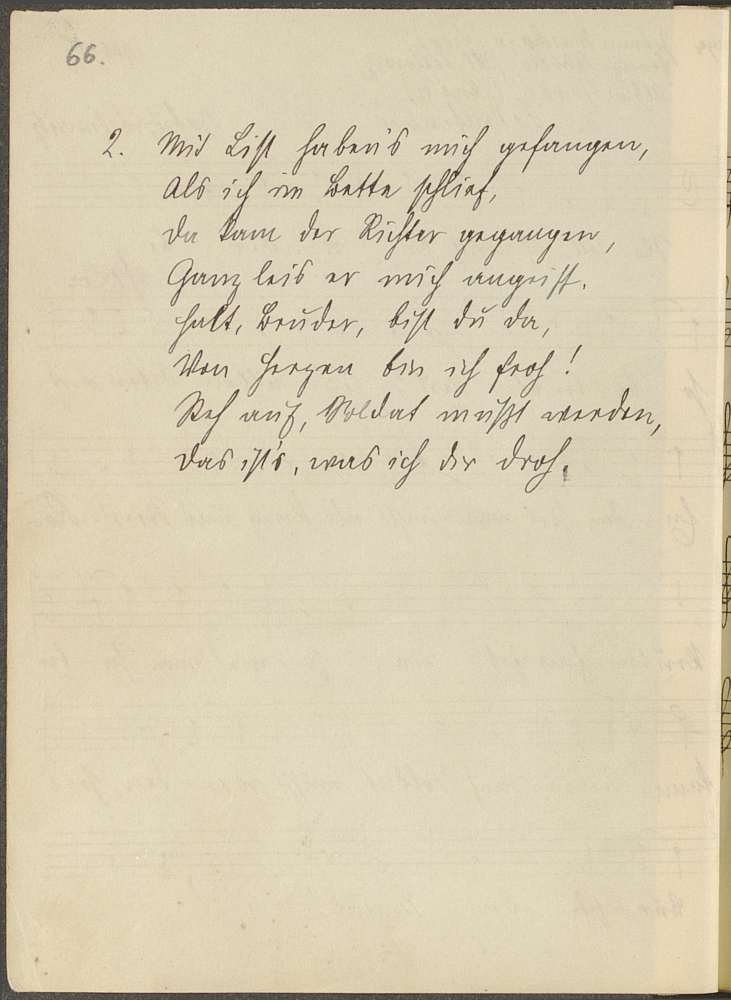 66.
2. Mit List haben's mich gefangen,
Als ich im Bette schlief,
Da kam der Richter gegangen,
Ganz leis er mich angriff.
Halt, Bruder, bist du da,
Von Herzen bin ich froh!
Steh auf, Soldat mußt werden,
Das ist's, was ich dir droh.